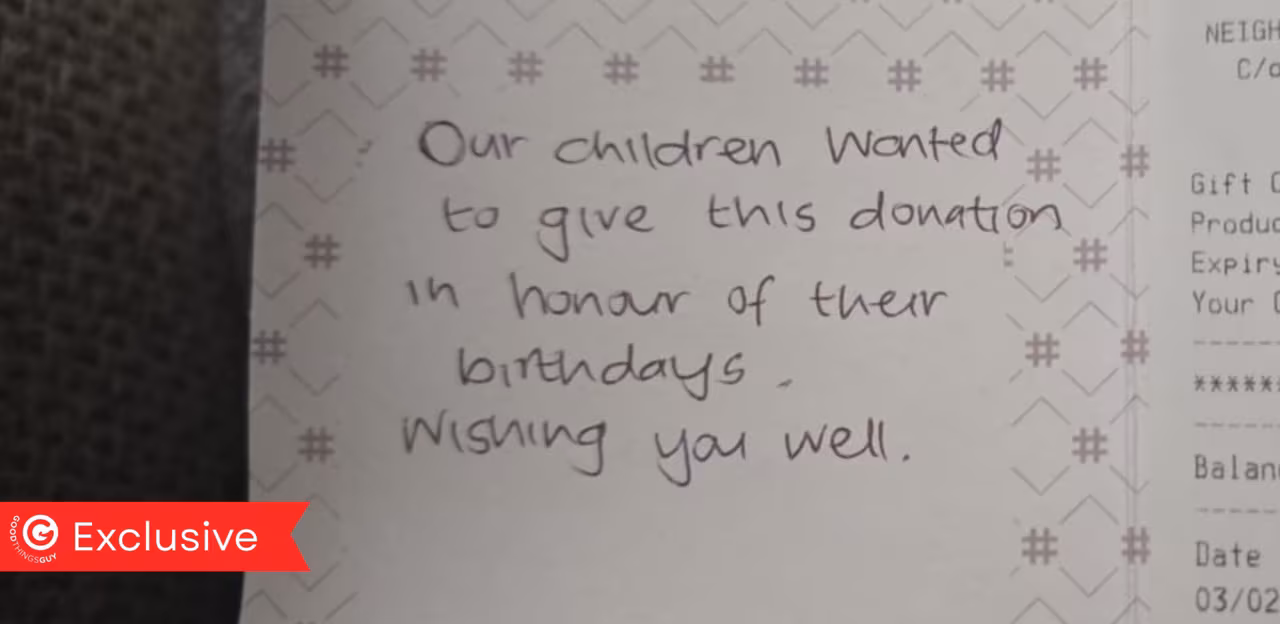 Our children wanted
to give this donation
in honour of their
birthdays.
Wishing you well.
NEIGH
C/o
Gift C
Produc
Expiry
Your C
--------
*******
--------
Balan
--------
Date
03/02
G Exclusive
GOODTHINGSGUY